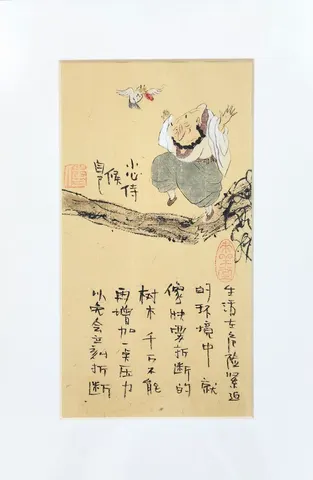 小心侍
候
自己
生活在危险紧迫
的环境中 就
像快要折断的
树木 千万不能
再增加一点压力
以免会立刻折断